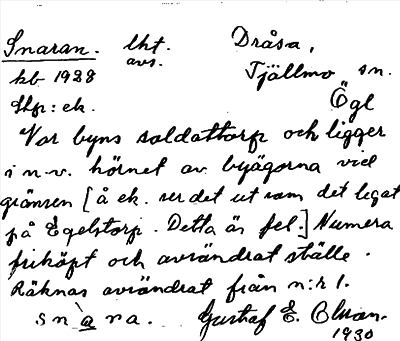 Snaran. lht. Dråsa,
avs.
kb 1928 Tjällmo sn.
Skp: ek. Ögl
Var byns soldattorp och ligger
i n.-v. hörnet av byägorna vid
gränsen [å ek. ser det ut som det legat
på Egelstorp. Detta är fel.] Numera
friköpt och avrändrat ställe.
Räknas avrändrat från n:r 1.
snàra. Gustaf E. Olson.
1930